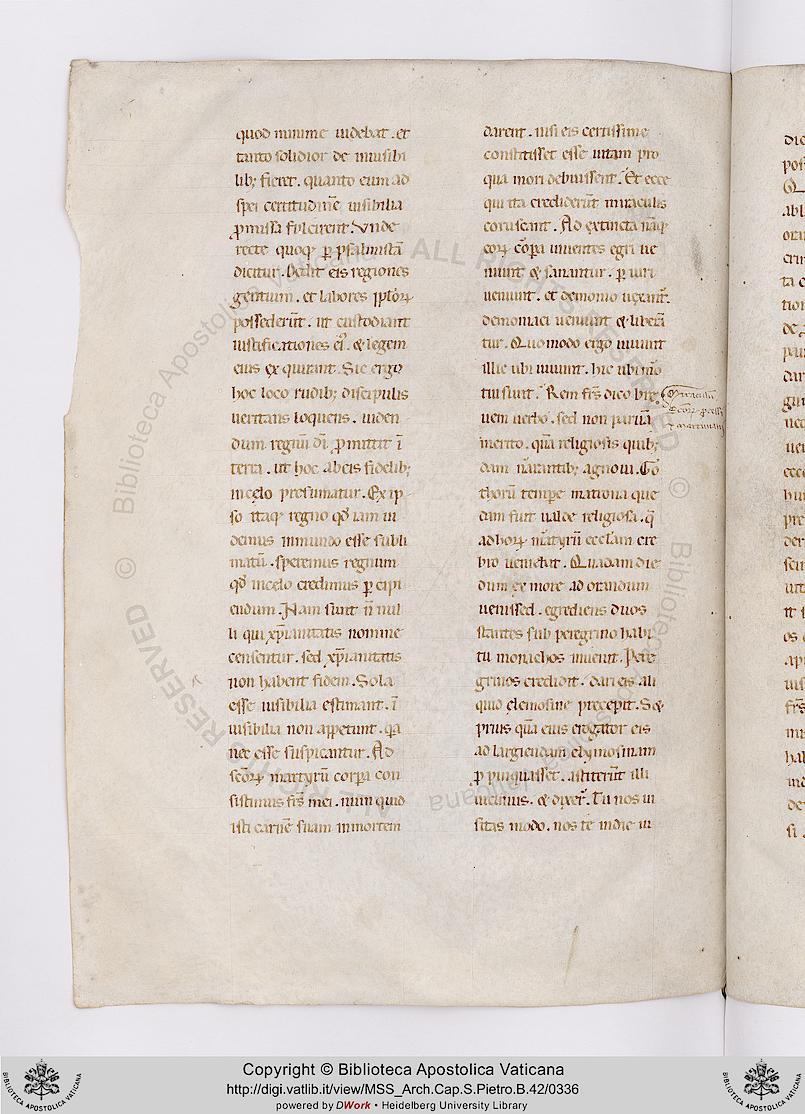 quod minime uidebat. et
tanto solidior de inuisibi
lib; fieret. quanto eum ad
spei certitudinē uisibilia
ꝓmissa fulcirent. Vnde
recte quoqꝫ ꝑ psalmistā
dicitur. Dedit eis regiones
gentium. et labores ppl'oꝝ
possederūt. ut custodiant
iustificationes eiꝰ. & legem
eius exquirant. Sic ergo
hoc loco rudib; discipulis
ueritatis loquens. uiden
dum regnū dī ꝓmittit ī
terra. ut hoc ab eis fidelib;
in celo presumatur. Ex ip
so itaqꝫ regno qđ iam ui
demus in mundo esse subli
matū. speremus regnum
qđ in celo credimus ꝑcipi
endum. Nam sunt ñ nul
li qui xp̄ianitatis nomine
censentur. sed xp̄ianitatis
non habent fidem. Sola
esse uisibilia estimant. ī
uisibilia non appetunt. qa
nec esse suspicantur. Ad
sc̄oꝝ martyrū corpa con
sistimus frs̄ mei. num quid
isti carnē suam in mortem
darent. nisi eis certissime
constitisset esse uitam pro
qua mori debuissent. Et ecce
qui ita crediderūt miraculis
coruscant. Ad extincta nāqꝫ
eoꝝ cōpa uiuentes egri ue
niunt & sanantur. ꝑiuri
ueniunt. et demonio uexant̄.
demoniaci ueniunt & liberā
tur. Quomodo ergo uiuunt
illic ubi uiuunt. si hic ubi mo
tui sunt. Rem frs̄ dico bre
uem uerbo. sed non paruā
merito. quā religiosis quib;
dam narrantib; agnoui. Go
thorū tempe matrona que
dam fuit ualde religiosa. q̄
ad horꝝ martyrū ecclam cre
bro ueniebat. Quadam die
dum ex more ad orandum
uenissed. egrediens duos
stantes sub peregrino habi
tu monachos inuenit. Pere
grinos credidit. dari eis ali
quid elemosine precepit. S&
prius quā eius erogator eis
ad largiendam elymosinam
ꝓpinquasset. astiterūt illi
uicinius. & dixert̄. Tu nos ui
sitas modo. nos te in die iu
Copyright © Biblioteca Apostolica Vaticana
http://digi.vatlib.it/view/MSS_Arch.Cap.S.Pietro.B.42/0336
powered by DWork • Heidelberg University Library
BIBLIOTECA APOSTOLICA VATICANA
BIBLIOTECA APOSTOLICA VATICANA
© Biblioteca Apostolica Vaticana ALL RIGHTS RESERVED